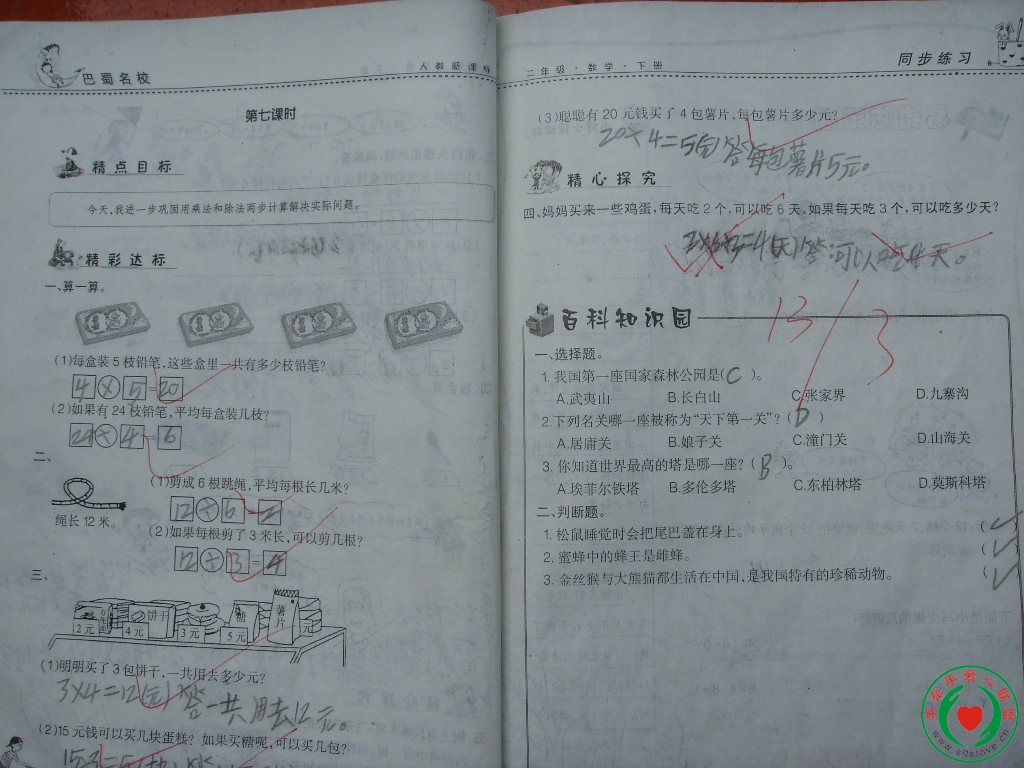 巴蜀名校
人教新课标
第七课时
精点目标
今天,我进一步巩固用乘法和除法两步计算解决实际问题。
精彩达标
一、算一算。
(1)每盒装5枝铅笔,这些盒里一共有多少枝铅笔?
4×5=20
(2)如果有24枝铅笔,平均每盒装几枝?
24÷4=6
二、
(1)剪成6根跳绳,平均每根长几米?
12÷6=2
绳长12米。
(2)如果每根剪了3米长,可以剪几根?
12÷3=4
三、
饼干
糖
薯片
2元 4元 3元 5元 元
(1)明明买了3包饼干,一共用去多少元?
3×4=12(元)答一共用去12元。
(2)15元钱可以买几块蛋糕?如果买糖呢,可以买几包?
二年级·数学·下册
同步练习
(3)聪聪有20元钱买了4包薯片,每包薯片多少元?
20÷4=5(元)答每包薯片5元。
精心探究
四、妈妈买来一些鸡蛋,每天吃2个,可以吃6天。如果每天吃3个,可以吃多少天?
=4(天)答:可以吃4天。
13/3
百科知识园
一、选择题。
1.我国第一座国家森林公园是(C)。
A.武夷山 B.长白山 C.张家界 D.九寨沟
2.下列名关哪一座被称为“天下第一关”?(D)
A.居庸关 B.娘子关 C.潼门关 D.山海关
3.你知道世界最高的塔是哪一座?(B)。
A.埃菲尔铁塔 B.多伦多塔 C.东柏林塔 D.莫斯科塔
二、判断题。
1.松鼠睡觉时会把尾巴盖在身上。 (✓)
2.蜜蜂中的蜂王是雌蜂。 (✓)
3.金丝猴与大熊猫都生活在中国,是我国特有的珍稀动物。 (✓)
手牵手爱心联盟
www.sqslove.cn